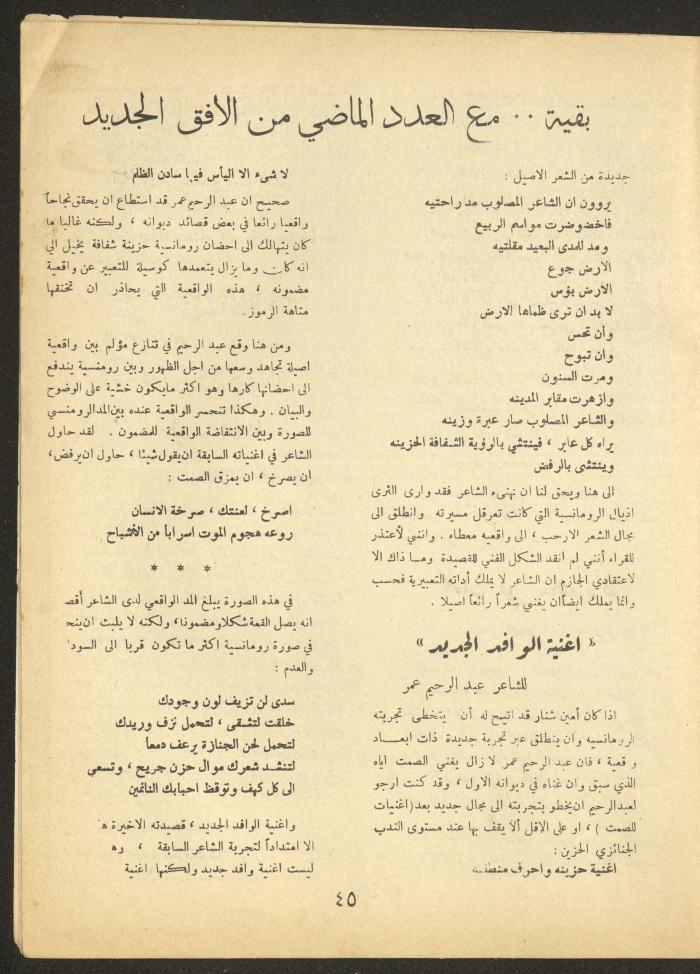 بقية .. مع العدد الماضي من الافق الجديد
جديدة من الشعر الاصيل :
يروون ان الشاعر المصلوب مد راحتيه
فاخضوضرت مواسم الربيع
ومد للمدى البعيد مقلتيه
الارض جوع
الارض بؤس
لا بد ان ترى ظماها الارض
وأن تحس
وان تبوح
ومرت السنون
وازهرت مقابر المدينه
والشاعر المصلوب صار عبرة وزينه
يراه كل عابر ، فينتشي بالرؤية الشفافة الحزينه
وينتشي بالرفض
الى هنا ويحق لنا ان نهنىء الشاعر فقد وارى الثرى
اذيال الرومانسية التي كانت تعرقل مسيرته وانطلق الى
مجال الشعر الارحب ، الى واقعيه معطاء . وانني لأعتذر
للقراء أنني لم انقد الشكل الفني للقصيدة وما ذاك الا
لاعتقادي الجازم ان الشاعر لا يملك أداته التعبيرية فحسب
وانما يملك ايضاً ان يغني شعراً رائعاً اصيلا .
« اغنية الوافد الجديد »
للشاعر عبد الرحيم عمر
اذا كان أمين شنار قد اتيح له أن يتخطى تجربته
الرومانسيه وان ينطلق عبر تجربة جديدة ذات ابعاد
وقعية ، فان عبد الرحيم عمر لا زال يغني الصمت اياه
الذي سبق وان غناه في ديوانه الاول ، وقد كنت ارجو
لعبد الرحيم ان يخطو بتجربته الى مجال جديد بعد ( اغنيات
للصمت ) ، او على الإقل ألا يقف بها عند مستوى الندب
الجنائزي الحزين :
اغنية حزينه واحرف منطفئه
لا شىء الا اليأس فيها سادن الظلم
صحيح ان عبد الرحيم عمر قد استطاع ان يحقق نجاحاً
واقعيا رائعا في بعض قصائد ديوانه ، ولكنه غالبا ما
كان يتهالك الى احضان رومانسية حزينة شفافة يخيل الي
انه كان وما يزال يتعمدها كوسيلة للتعبير عن واقعية
مضمونه ، هذه الواقعية التي يحاذر ان تخنقها
متاهة الرموز.
ومن هنا وقع عبد الرحيم في تنازع مؤلم بين واقعية
اصيلة تجاهد وسعها من اجل الظهور وبين رومنسية يندفع
الى احضانها كارها وهو اكثر مايكون خشية على الوضوح
والبيان . وهكذا تنحسر الواقعية عنده بين المد الرومنسي
للصورة وبين الانتفاضة الواقعية للمضمون . لقد حاول
الشاعر في اغنياته السابقة ان يقول شيئا ، حاول ان يرفض ،
ان يصرخ ، ان يمزق الصمت :
اصرخ ، لعنتك ، صرخة الانسان
روعه هجوم الموت اسراباً من الأشباح
* * *
في هذه الصورة يبلغ المد الواقعي لدى الشاعر أقصـ
انه يصل القمة شكلا ومضمونا ، ولكنه لا يلبث ان
في صورة رومانسية اكثر ما تكون قربا الى السود
والعدم :
سدى لن تزيف لون وجودك
خلقت لتشقى ، لتحمل نزف وريدك
لتحمل لحن الجنازة يرعف دمعا
لتنشد شعرك موال حزن جريح ، وتسعى
الى كل كهف وتوقظ احبابك النائمين
واغنية الوافد الجديد ، قصيدته الاخيرة
الا امتداداً لتجربة الشاعر السابقة ،
ليست اغنية وافد جديد ولكنها اغنية
٤٥